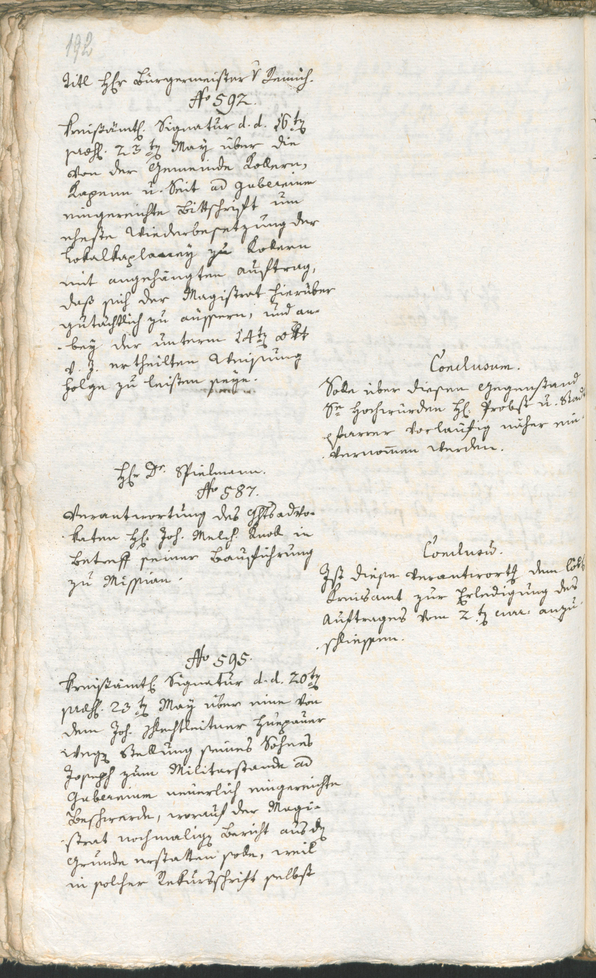 192
Titl Hr Bürgermeister v Remich.
No 592.
Kreißämtl. Signatur d. d. 16t
præs. 23t May über die
von der Gemeinde Kolern,
Kapenn u. Seit ad Gubernium
eingereichte Bittschrift um
eheste Wiederbesetzung der
Lokalkaplaney zu Kolern
mit angehängten Auftrag,
daß sich der Magistrat hierüber
gutächtlich zu äussern, und an-
bey der unterm 14t
v. J. ertheilten Weisung
Folge zu leisten seye.
Conclusum.
Solle über diesen Gegenstand
Sr Hochwürden H. Probst u. Stadt
pfarrer vorläufig näher ein-
vernommen werden.
Hr Dr. Spielmann.
No 587.
Verantwortung des Ghtsadvo-
katen H. Joh. Melch. Knoll in
Betreff seiner Bauführung
zu Missian.
Conclus.
Ist diese Verantwortg dem löbl.
Kreisamt zur Erledigung des
Auftrages vom 2t curr. anzu-
schliessen.
No 595.
Kreißämtl. Signatur d. d. 20t
præs. 23t May über eine von
dem Joh.
wegen Stellung seines Sohnes
Joseph zum Militärstande ad
Gubernium neuerlich eingereichte
Beschwerde, worauf der Magi-
strat nochmalig Bericht aus dem
Grunde erstatten solle, weil
in solcher Rekursschrift selbst